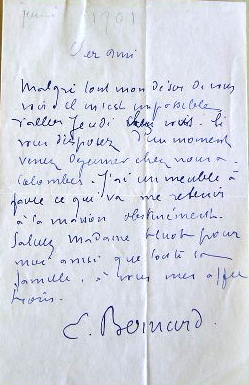 janvier 1901
Cher ami
Malgré tout mon désir de vous
voir il m'est impossible
d'aller Jeudi chez vous. Si
vous disposez d'un moment
venez dejeuner chez nous a
Colombes. J'ai un meuble à
faire ce qui va me retenir
à la maison obstinément.
Saluez Madame pour
moi ainsi que toute la
famille. à vous mes affec
tions.
E. Bernard.